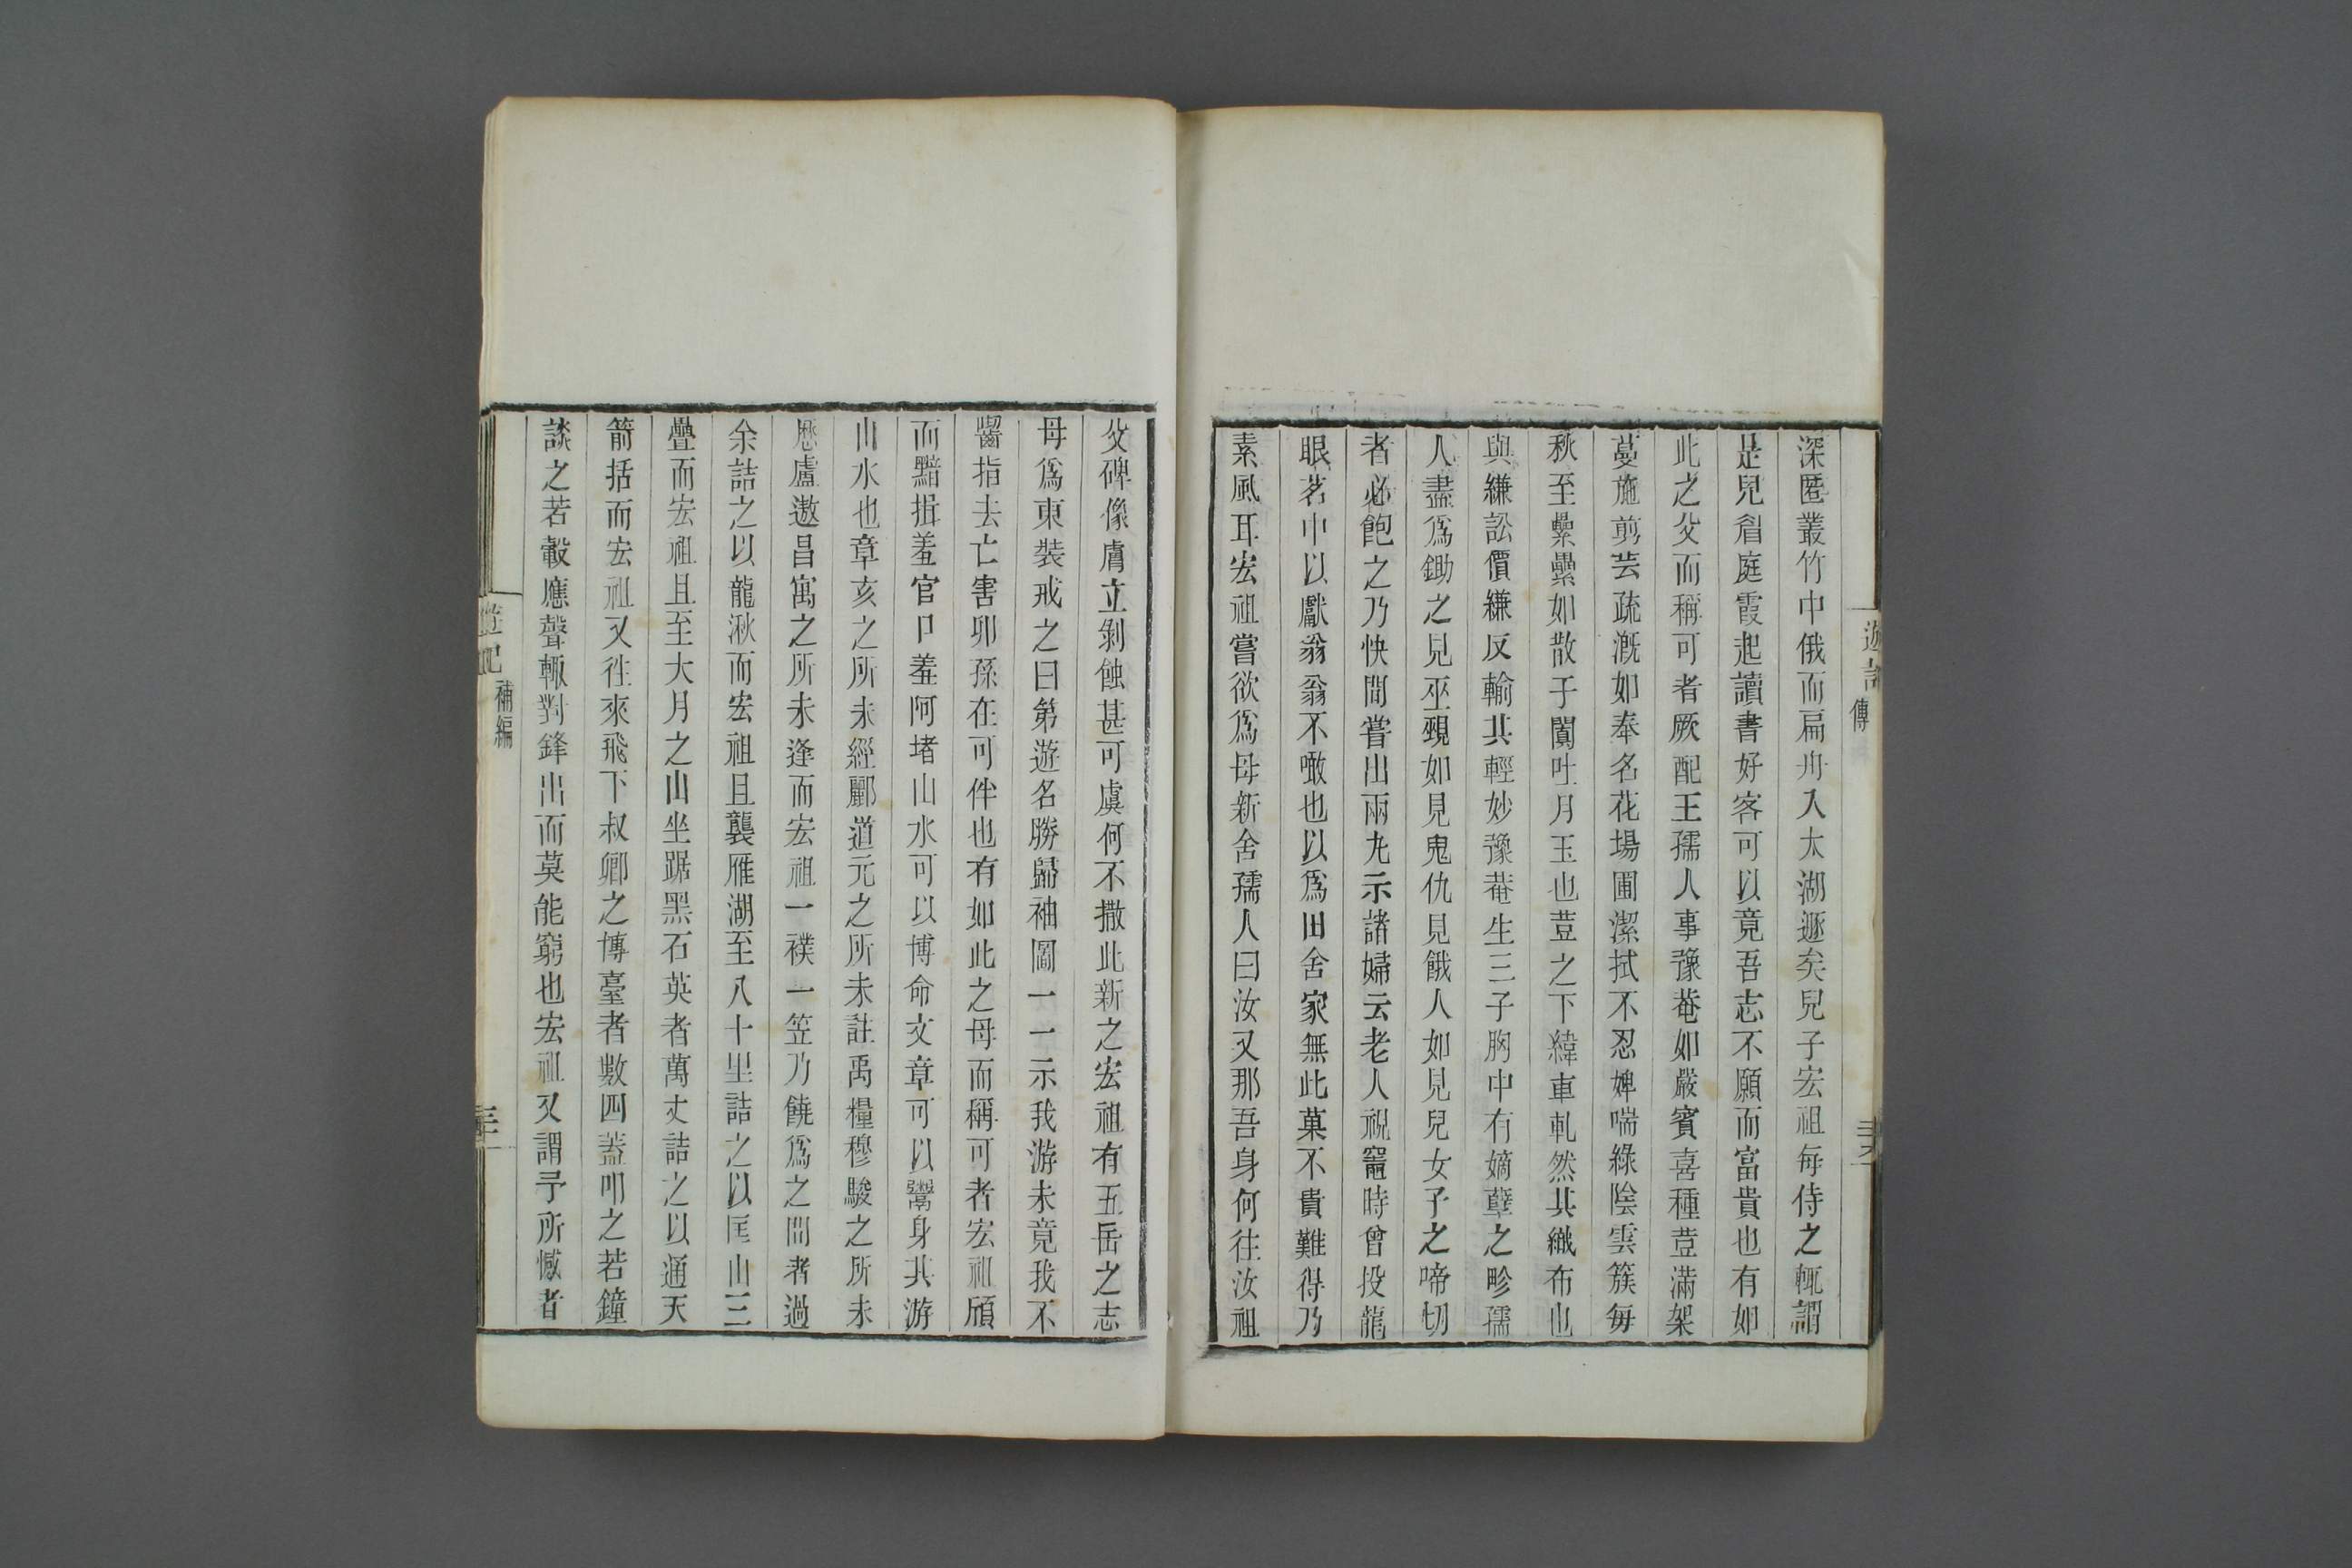 遊記
傳
深匿叢竹中俄而扁舟入太湖遯矣兒子宏祖每侍之輒謂
是兒眉庭霞起讀書好客可以竟吾志不願而富貴也有如
此之父而稱可者厥配王孺人事豫菴如嚴賓喜種荳滿架
蔓施剪芸疏溉如奉名花場圃潔拭不忍婢喘綠陰雲簇每
秋至纍纍如散子闐吐月玉也荳之下緯車軋然其織布也
與縑訟價縑反輸其輕妙豫菴生三子胸中有嫡孽之畛孺
人盡爲鋤之見巫覡如見鬼仇見餓人如見兒女子之啼切
者必飽之乃快間嘗出兩九示諸婦云老人視竈時曾投龍
眼茗中以獻翁翁不噉也以爲田舍家無此菓不貴難得乃
素風耳宏祖嘗欲爲母新舍孺人曰汝又那吾身何往汝祖
父碑像膚立剝蝕甚可虞何不撒此新之宏祖有五岳之志
母爲東裝戒之曰第遊名勝歸袖圖一一示我游未竟我不
齧指去亡害卯孫在可伴也有如此之母而稱可者宏祖頎
而黯揖羞官口羞阿堵山水可以博命文章可以鬻身其游
山水也章亥之所未經酈道元之所未註禹糧穆駿之所未
歷盧遨昌寓之所未逢而宏祖一襆一笠乃饒爲之間者過
余詰之以龍湫而宏祖且襲雁湖至八十里詰之以匡山三
疊而宏祖且至大月之山坐踞黑石英者萬丈詰之以通天
箭括而宏祖又徃來飛下叔卿之博臺者數四蓋叩之若鐘
談之若轂應聲輒對鋒出而莫能窮也宏祖又謂予所憾者
遊記
補編